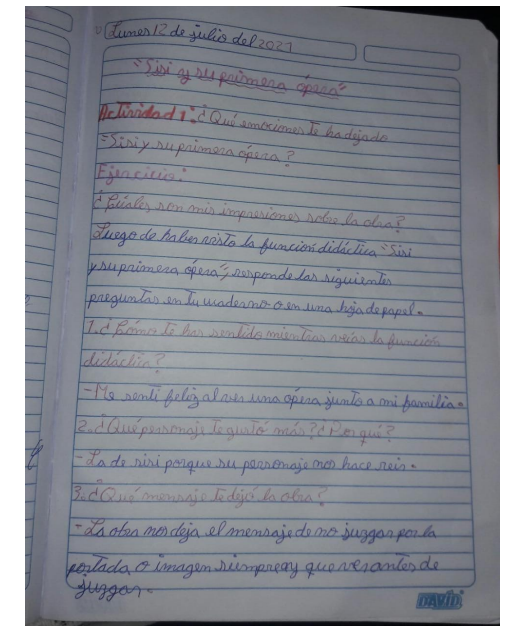 Lunes 12 de julio del 2021
"Sisi y su primera ópera"
Actividad 1: ¿Qué emociones te ha dejado
"Sisi y su primera ópera?
Ejercicio:
¿Cuáles son mis impresiones sobre la obra?
Luego de haber visto la función didáctica "Sisi
y su primera ópera", responde las siguientes
preguntas en tu cuaderno o en una hoja de papel.
1.¿Cómo te has sentido mientras veías la función
didáctica?
-Me sentí feliz al ver una ópera junto a mi familia.
2.¿Qué personaje te gustó más? ¿Por qué?
- La de sisi porque su personaje nos hace reír.
3.¿Qué mensaje te dejó la obra?
- La obra nos deja el mensaje de no juzgar por la
portada o imagen siempre ay que ver antes de
juzgar.
DAVID